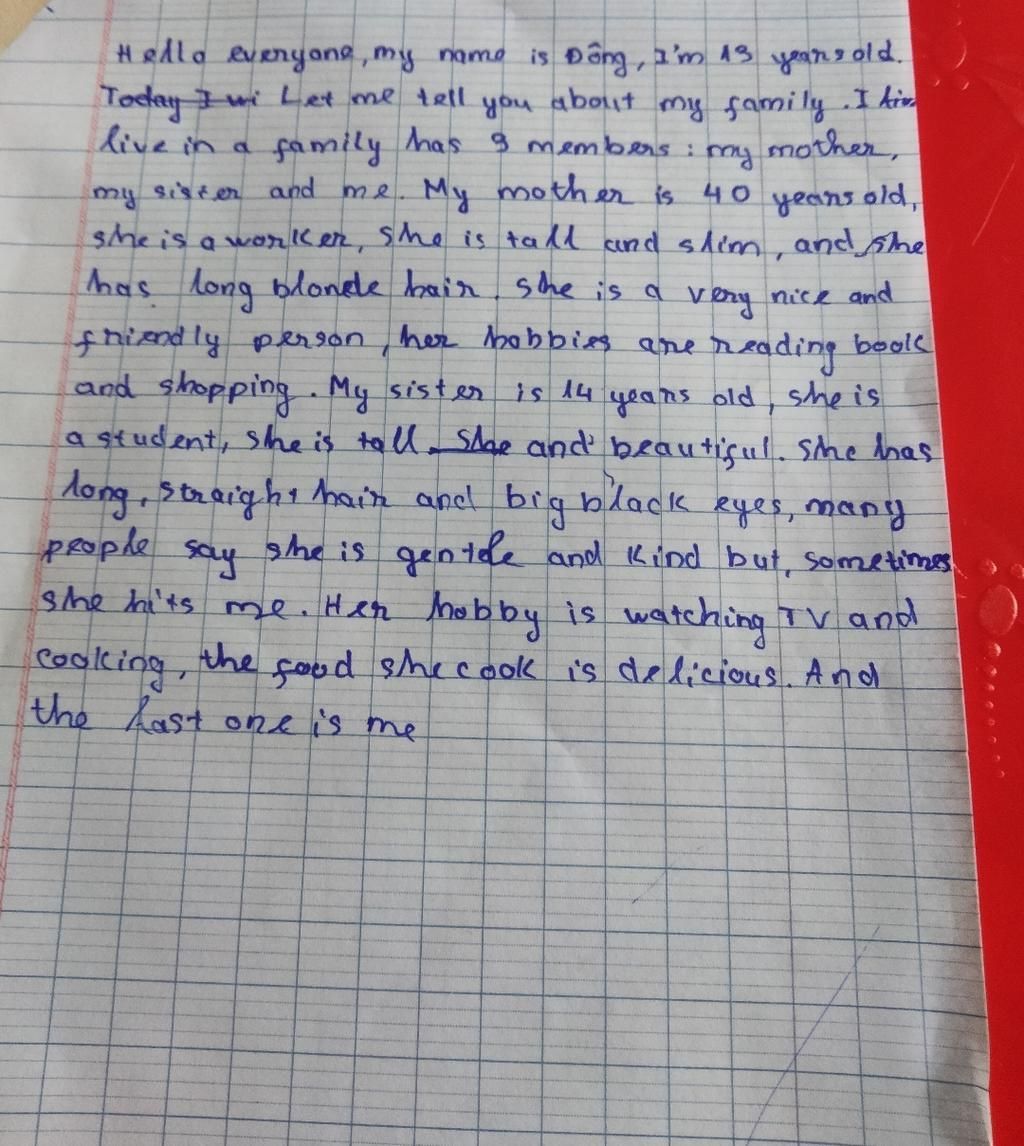 Hello everyone, my name is Đông, I'm 13 years old.
Today I wi Let me tell you about my family. I
live in a family has 3 members: my mother,
my sister and me. My mother is 40 years old,
she is a worker, she is tall and slim, and she
has long blonde hair. she is a very nice and
friendly person, her hobbies are reading book
and shopping. My sister is 14 years old, she is
a student, she is tall she and beautiful. she has
long, straight hair and big black eyes, many
people say she is gentle and kind but, sometimes
she hits me. Her hobby is watching TV and
cooking, the food she cook is delicious. And
the last one is me